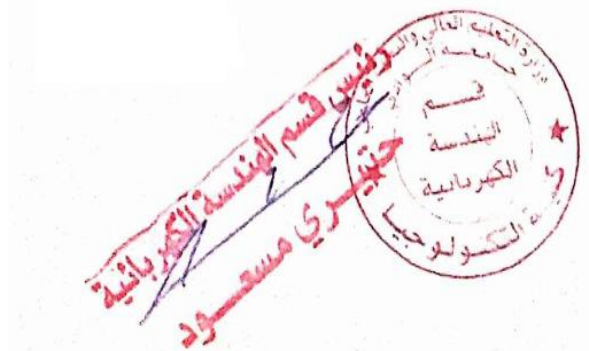 رئيس قسم الهندسة الكهربائية
خنيــري مسعــود
وزارة التعليم العالي والبـ
جامعــة الــوادي
قســــم
الهندسة
الكهربائية
كلية التكنولوجيا